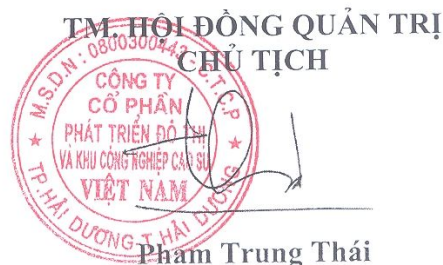 TM. HỘI ĐỒNG QUẢN TRỊ
CHỦ TỊCH
M.S.D.N: 0800300443 - C.T.C.P
CÔNG TY
CỔ PHẦN
PHÁT TRIỂN ĐÔ THỊ
VÀ KHU CÔNG NGHIỆP CAO SU
VIỆT NAM
TP. HẢI DƯƠNG - T. HẢI DƯƠNG
Phạm Trung Thái